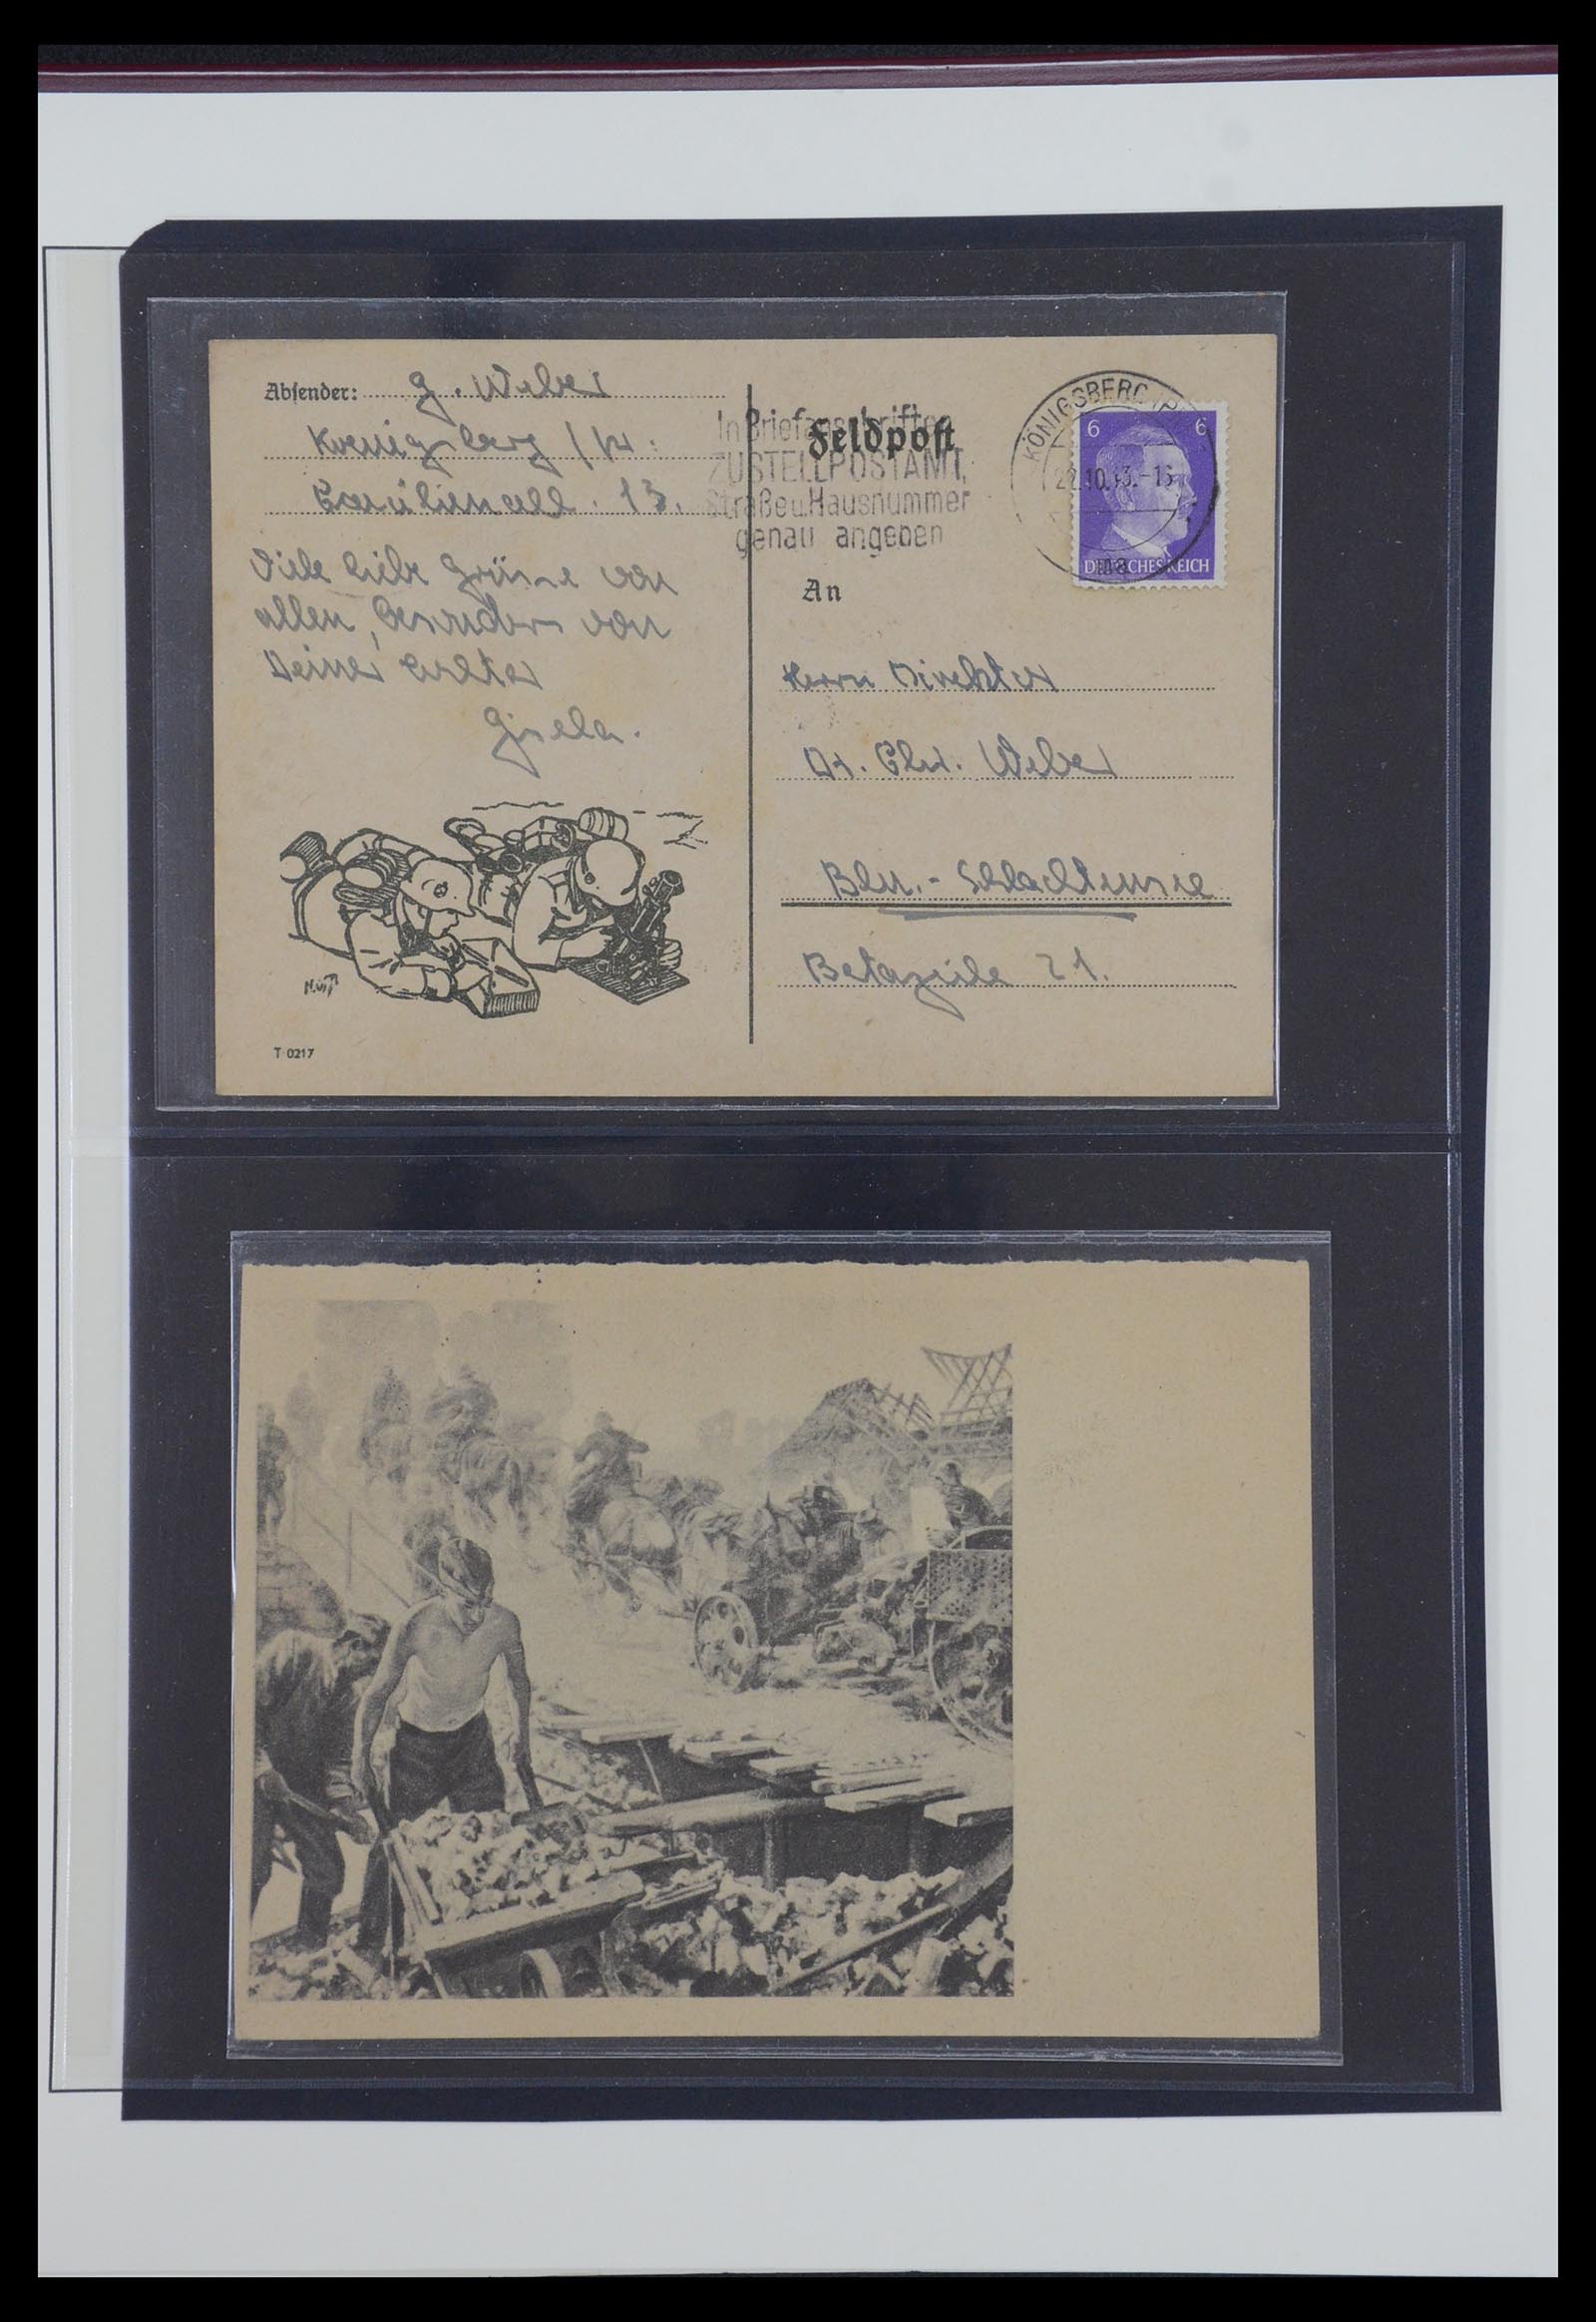 Absender: G. Weber
Koenigsberg / Pr.
13.
Viele liebe Grüsse von
allen, besonders von
Deiner
Gisela.
T 0217
In Briefanschriften
ZUSTELLPOSTAMT,
Straße u. Hausnummer
genau angeben
Feldpost
KÖNIGSBERG (PR)
22.10.43.-16
6 6
DEUTSCHES REICH
An
Herrn Direktor
Dr. Chr. Weber
Bln.- Schlachtensee
Betazeile 21.